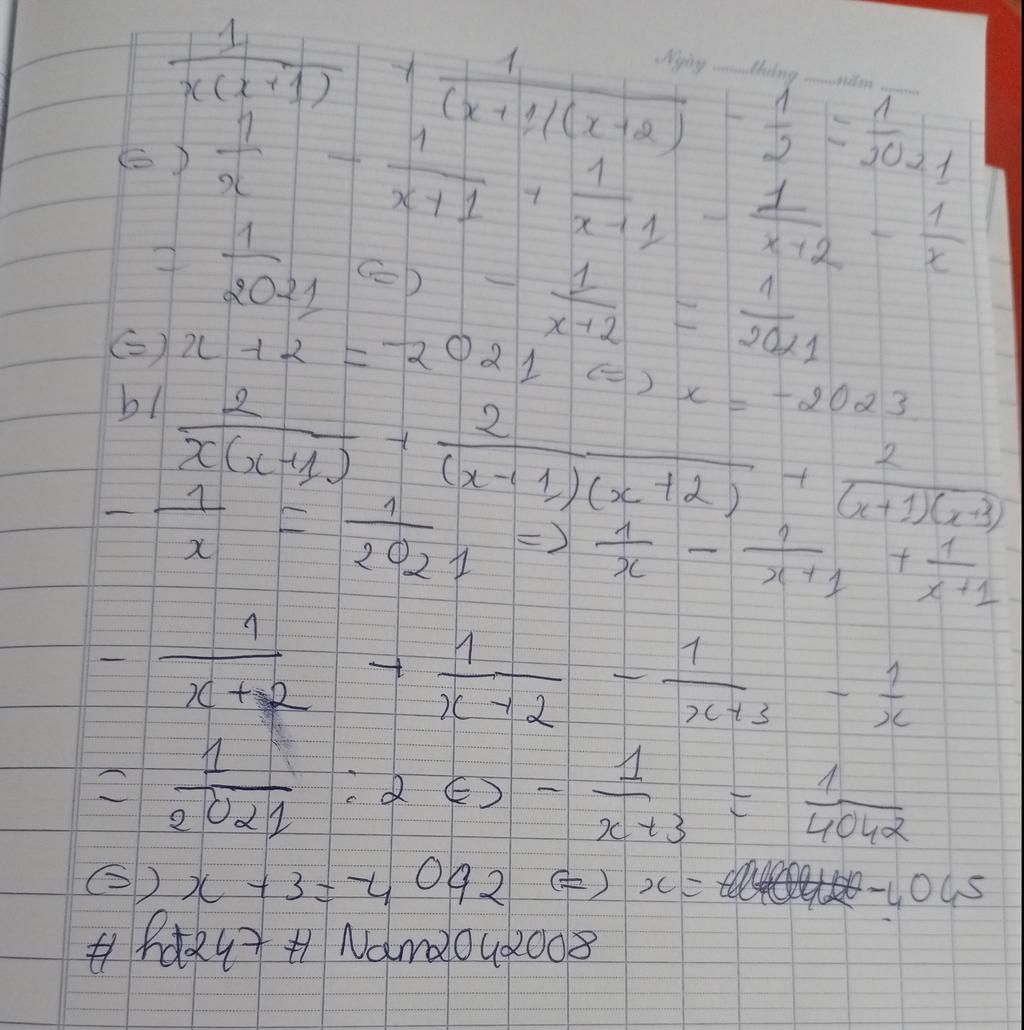 Ngày ........tháng ........năm ........
1/(x(x+1)) + 1/((x+1)(x+2)) - 1/2 = 1/2021
(=) 1/x - 1/(x+1) + 1/(x+1) - 1/(x+2) - 1/x
= 1/2021 (=) - 1/(x+2) = 1/2021
(=) x + 2 = -2021 (=) x = -2023
b/ 2/(x(x+1)) + 2/((x+1)(x+2)) + 2/((x+1)(x+3))
- 1/x = 1/2021 =) 1/x - 1/(x+1) + 1/(x+1)
- 1/(x+2) + 1/(x+2) - 1/(x+3) - 1/x
= 1/2021 : 2 (=) - 1/(x+3) = 1/4042
(=) x + 3 = -4042 (=) x = -4045
# hdt247 # Nam2042008